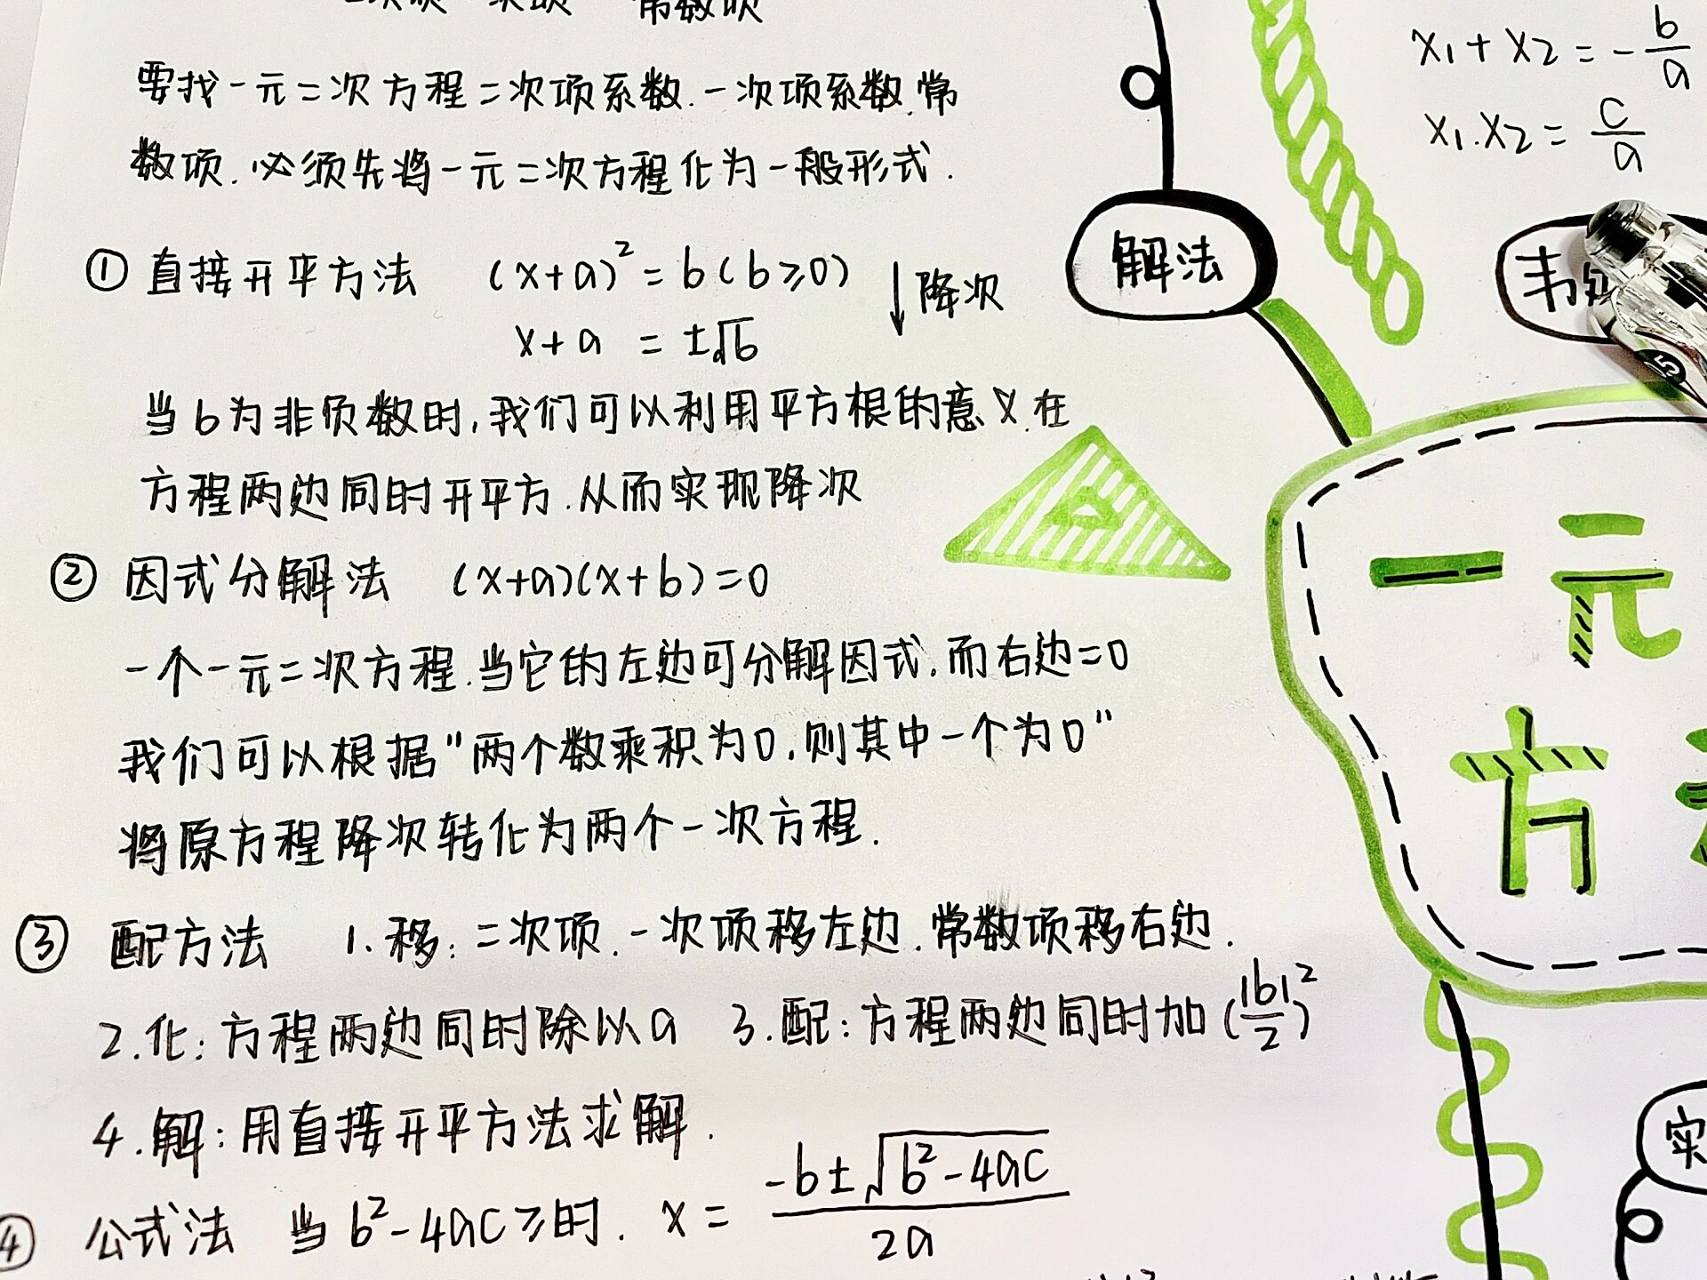 常数项
要找一元二次方程二次项系数.一次项系数.常
数项.必须先将一元二次方程化为一般形式.
① 直接开平方法 (x+a)²=b(b≥0) ↓降次
x+a = ±√b
当b为非负数时,我们可以利用平方根的意义.在
方程两边同时开平方.从而实现降次
② 因式分解法 (x+a)(x+b)=0
一个一元二次方程.当它的左边可分解因式.而右边=0
我们可以根据"两个数乘积为0.则其中一个为0"
将原方程降次转化为两个一次方程.
③ 配方法 1.移:二次项.一次项移左边.常数项移右边.
2.化:方程两边同时除以a 3.配:方程两边同时加(|b|/2)²
4.解:用直接开平方法求解.
④ 公式法 当b²-4ac≥时. x= (-b±√(b²-4ac))/2a
x₁+x₂=-b/a
x₁.x₂=c/a
解法
韦
一元
方
实